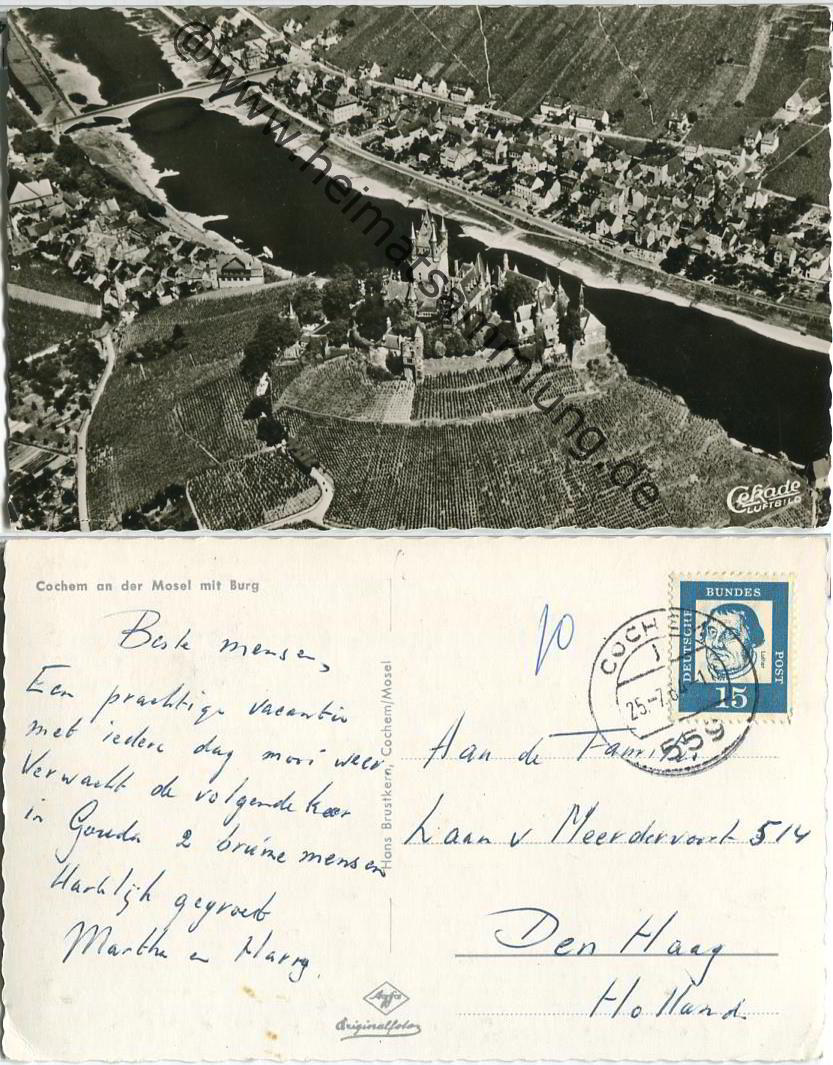 ©www.heimatsammlung.de
Cekade
LUFTBILD
Cochem an der Mosel mit Burg
Beste mensen,
Een prachtige vacantie
met iedere dag mooi weer
Verwacht de volgende keer
in Gouda 2 bruine mensen
Hartelijk gegroet
Martha en Harry.
Hans Brustkern, Cochem/Mosel
Agfa
Originalfoto
10
DEUTSCHE
BUNDES
POST
Luther
15
COCHEM
25.-7.
559
Aan de Familie
Laan v Meerdervoort 514
Den Haag
Holland